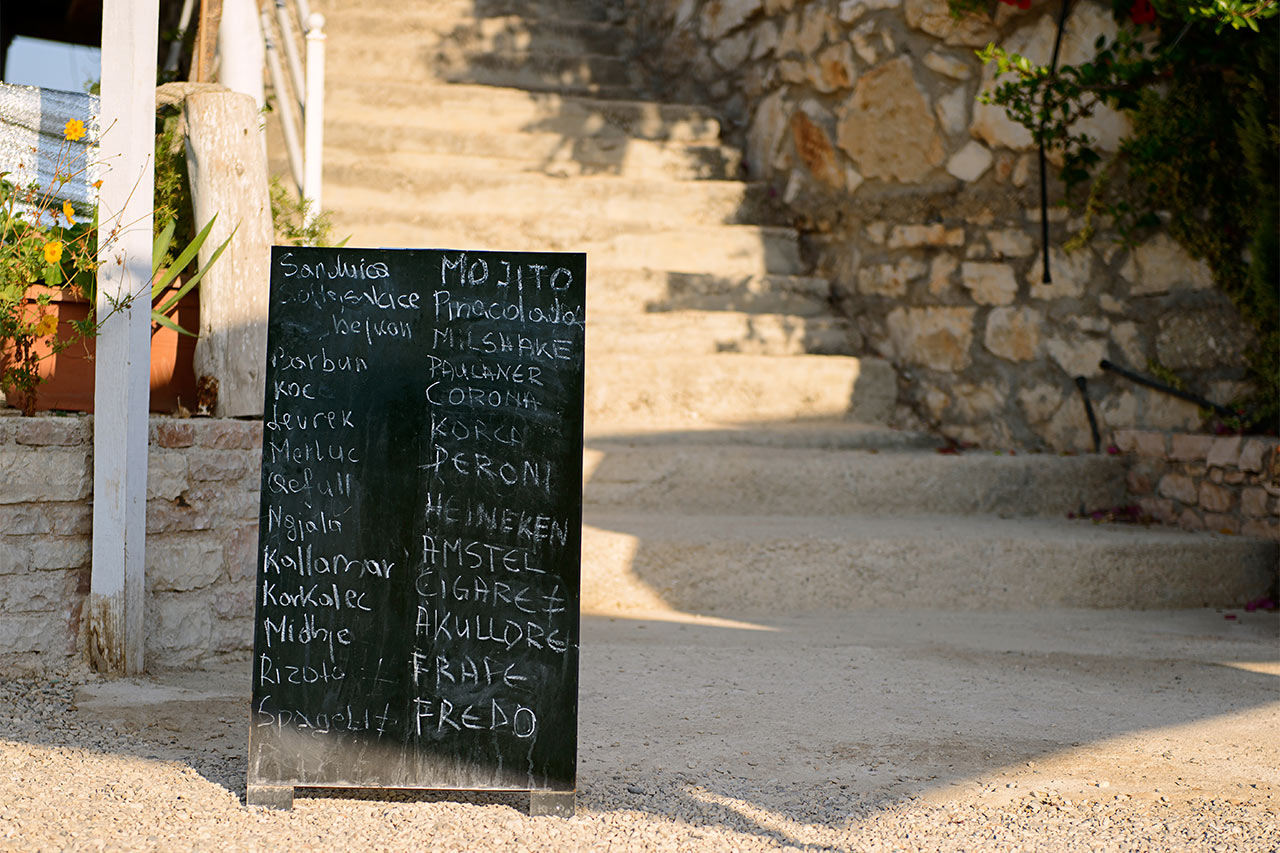 Sanduica
bejkon
Barbun
Koc
Levrek
Merluc
Qefull
Ngjala
Kallamar
Karkalec
Midhje
Rizoto
Spageti
MOJITO
Pinacolada
MILSHAKE
PAULANER
CORONA
KORCA
PERONI
HEINEKEN
AMSTEL
CIGARE
AKULLORE
FRAPE
FREDO